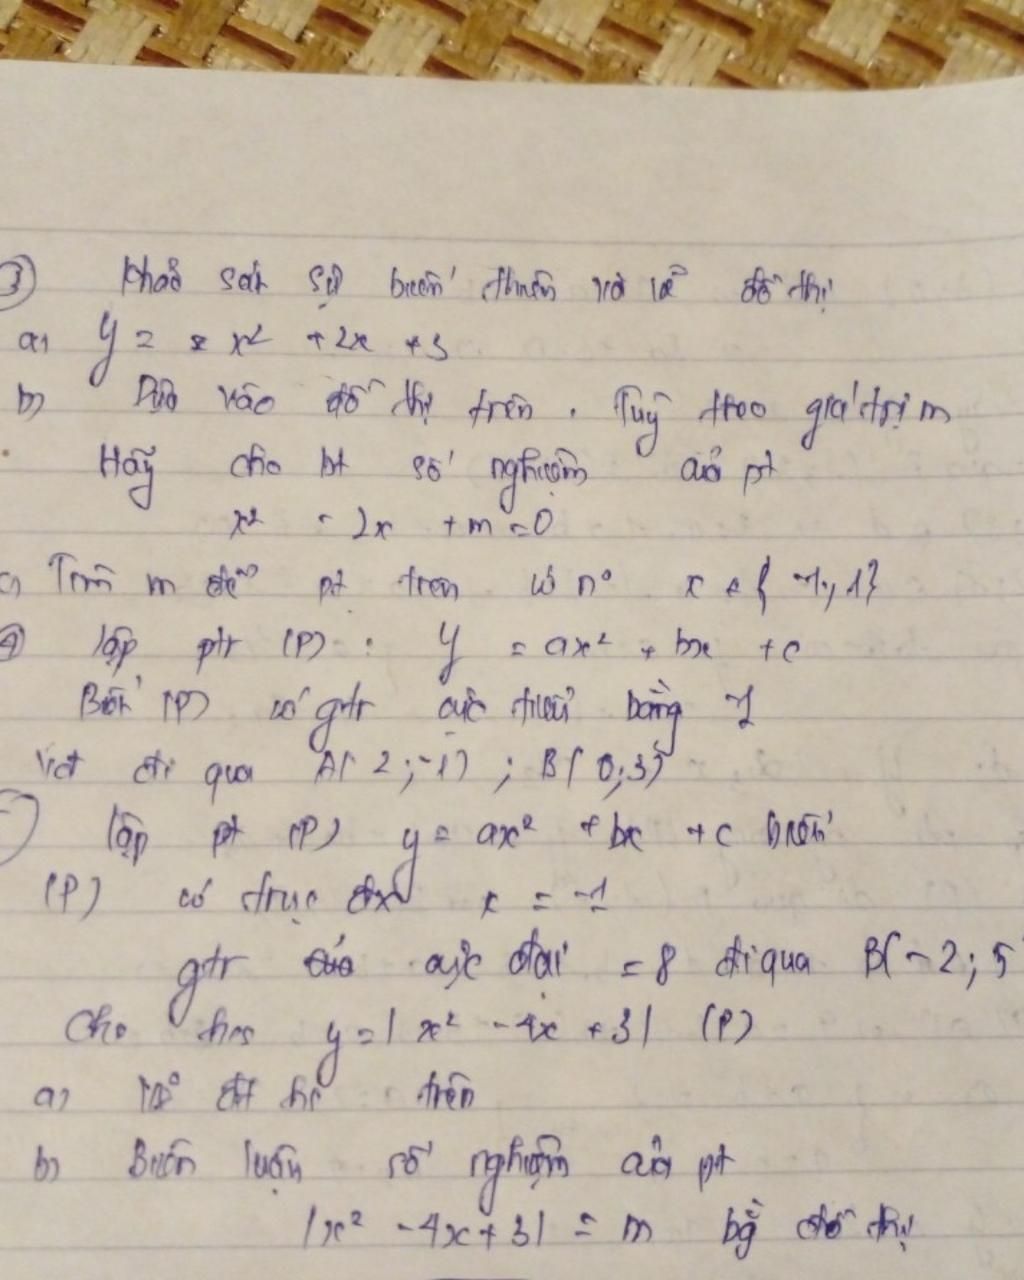 3) Khảo sát sự biến thiên và vẽ đồ thị
a) y = - x² + 2x + 3
b) Dựa vào đồ thị trên. Tuỳ theo giá trị m
Hãy cho bt số nghiệm của pt
x² - 2x + m = 0
c) Tìm m để pt trên có n° x ∈ { -1; 1}
4) lập ptr (P) : y = ax² + bx + c
Biết (P) có gtr cực tiểu bằng -1
đi qua A( 2 ; -1) ; B( 0; 3)
lập pt (P) y = ax² + bx + c biết
(P) có trục đx x = -1
gtr cực đại = 8 đi qua B( - 2 ; 5
Cho hs y = | x² - 4x + 3 | (P)
a) Vẽ đt hs trên
b) Biện luận số nghiệm của pt
|x² - 4x + 3| = m bg đồ thị